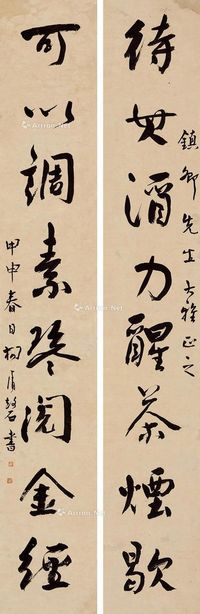 鎮卿先生大雅正之
待其酒力醒茶煙歇
可以調素琴閱金經
甲申春日書